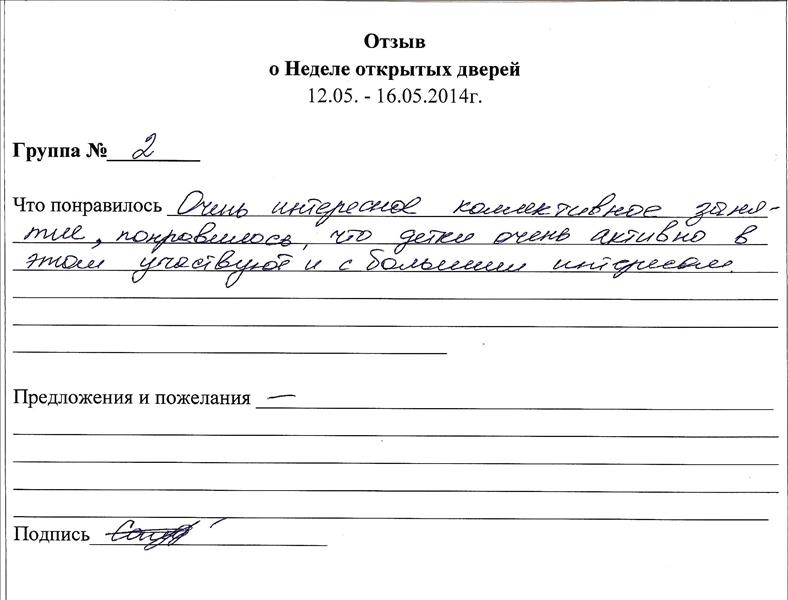 Отзыв
о Неделе открытых дверей
12.05. - 16.05.2014г.
Группа № 2
Что понравилось Очень интересное коллективное заня-
тие, понравилось, что детки очень активно в
этом участвуют и с большим интересом.
Предложения и пожелания —
Подпись